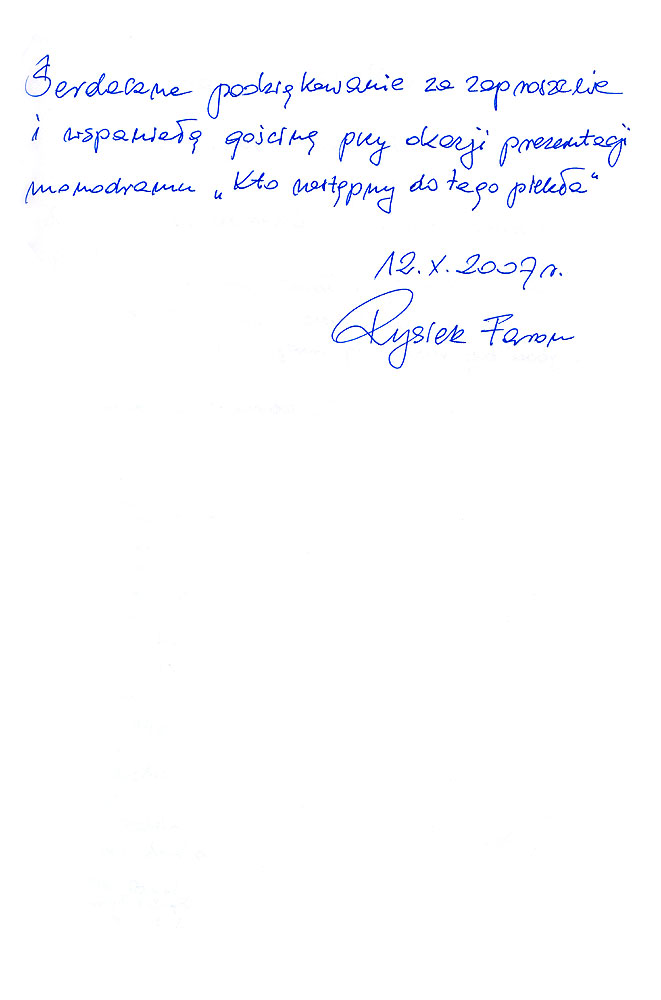 Serdeczne podziękowanie za zaproszenie
i wspaniałą gościnę przy okazji prezentacji
monodramu „Kto następny do tego piekła”
12.X.2007r.
Rysiek Faron